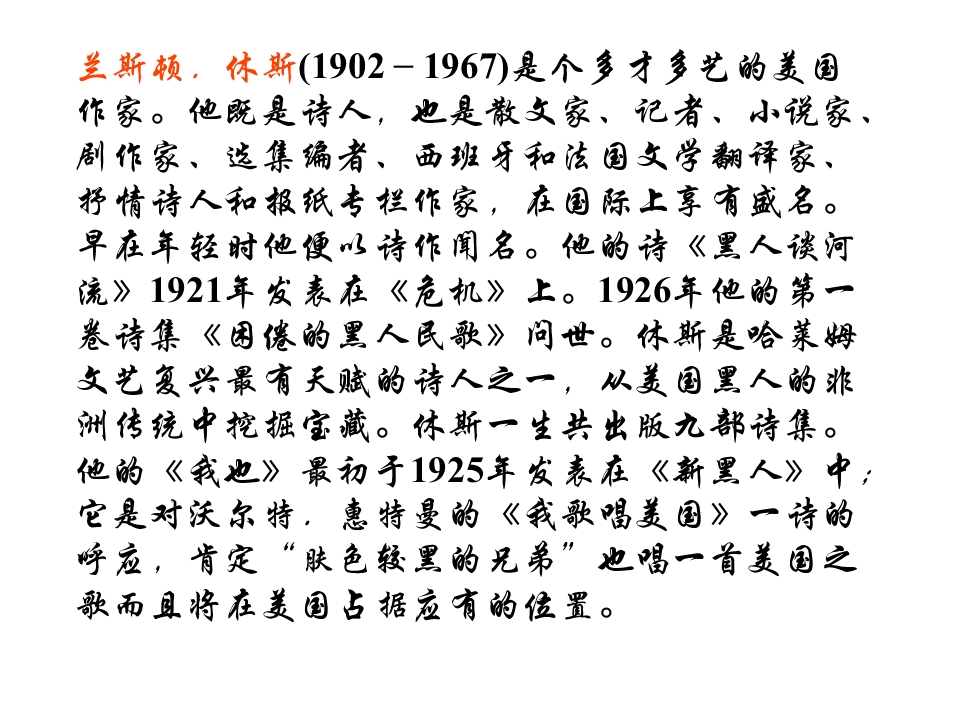 兰斯顿．休斯(1902－1967)是个多才多艺的美国
作家。他既是诗人，也是散文家、记者、小说家、
剧作家、选集编者、西班牙和法国文学翻译家、
抒情诗人和报纸专栏作家，在国际上享有盛名。
早在年轻时他便以诗作闻名。他的诗《黑人谈河
流》1921年发表在《危机》上。1926年他的第一
卷诗集《困倦的黑人民歌》问世。休斯是哈莱姆
文艺复兴最有天赋的诗人之一，从美国黑人的非
洲传统中挖掘宝藏。休斯一生共出版九部诗集。
他的《我也》最初于1925年发表在《新黑人》中；
它是对沃尔特．惠特曼的《我歌唱美国》一诗的
呼应，肯定“肤色较黑的兄弟”也唱一首美国之
歌而且将在美国占据应有的位置。